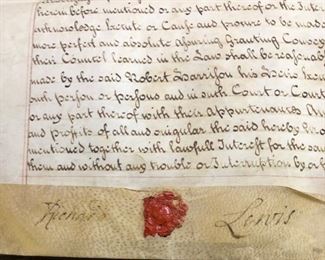 herein before mentioned or any part thereof or the Inter
acknowledge Execute or Cause and procure to be made
more perfect and absolute assuring Granting Convey
their Councel learned in the Law shall be reasonabl
made by the said Robert Harrison his Heirs Exec
such person or persons and in such Court or Court
or any part thereof with their Appurtenances An
and profits of all and singular the said hereby
mentioned together with lawfull Interest for the sa
them and without any trouble or Interruption by or
Richard Lewis